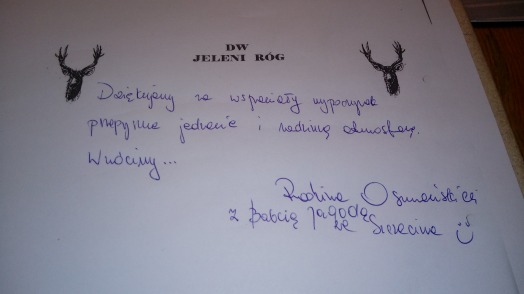 DW
JELENI RÓG
Dziękujemy za wspaniały wypoczynek
przepyszne jedzenie i rodzinną atmosferę.
Wrócimy...
Rodzina
z Babcią Jagodą
ze Szczecina